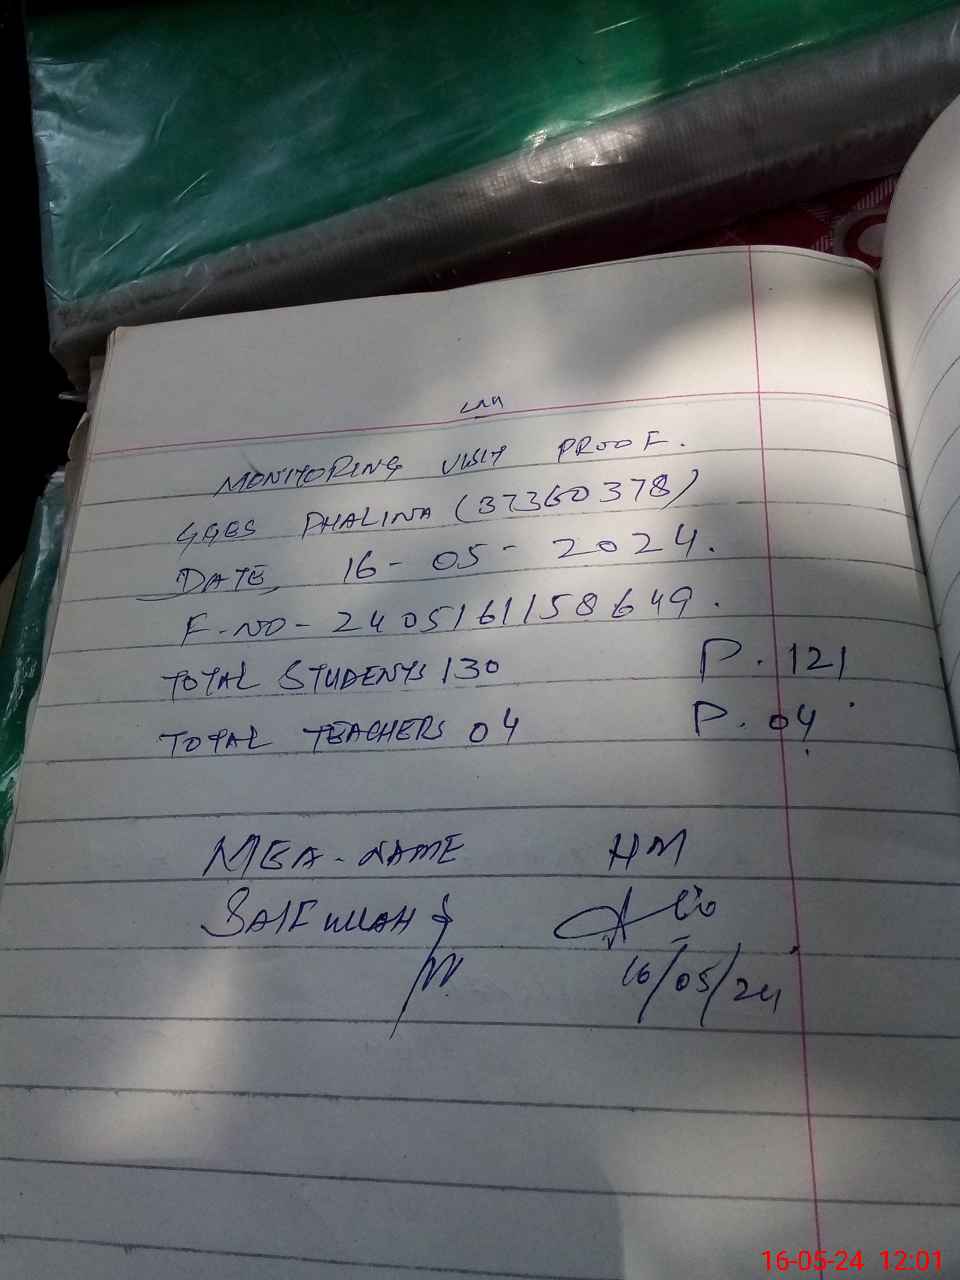 MONITORING VISIT PROOF.
GGES PHALINA (37360378)
DATE 16-05-2024.
F-NO-2405161158649.
TOTAL STUDENTS 130 P. 121
TOTAL TEACHERS 04 P. 04
MEA-NAME HM
SAIFULLAH
16/05/24
16-05-24 12:01